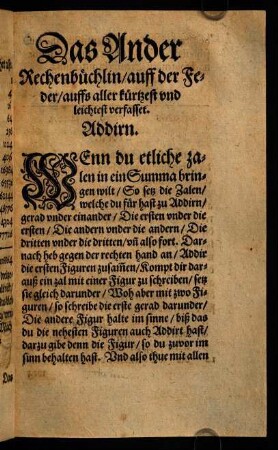 Das Ander
Rechenbüchlin/ auff der Fe-
der/ auffs aller kürtzest vnd
leichtest verfasset.
Addirn.
WEnn du etliche za-
len in ein Summa brin-
gen wilt/ So setz die Zalen/
welche du für hast zu Addirn/
gerad vnder einander/ Die ersten vnder die
ersten/ Die andern vnder die andern/ Die
dritten vnder die dritten/ vñ also fort. Dar-
nach heb gegen der rechten hand an/ Addir
die ersten Figuren zusam̃en/ Kompt dir dar-
auß ein zal mit einer Figur zu schreiben/ setz
sie gleich darunder/ Woh aber mit zwo Fi-
guren/ so schreibe die erste gerad darunder/
Die andere Figur halte im sinne/ biß das
du die nehesten Figuren auch Addirt hast/
darzu gibe denn die Figur/ so du zuvor im
sinn behalten hast. Vnd also thue mit allen
Das